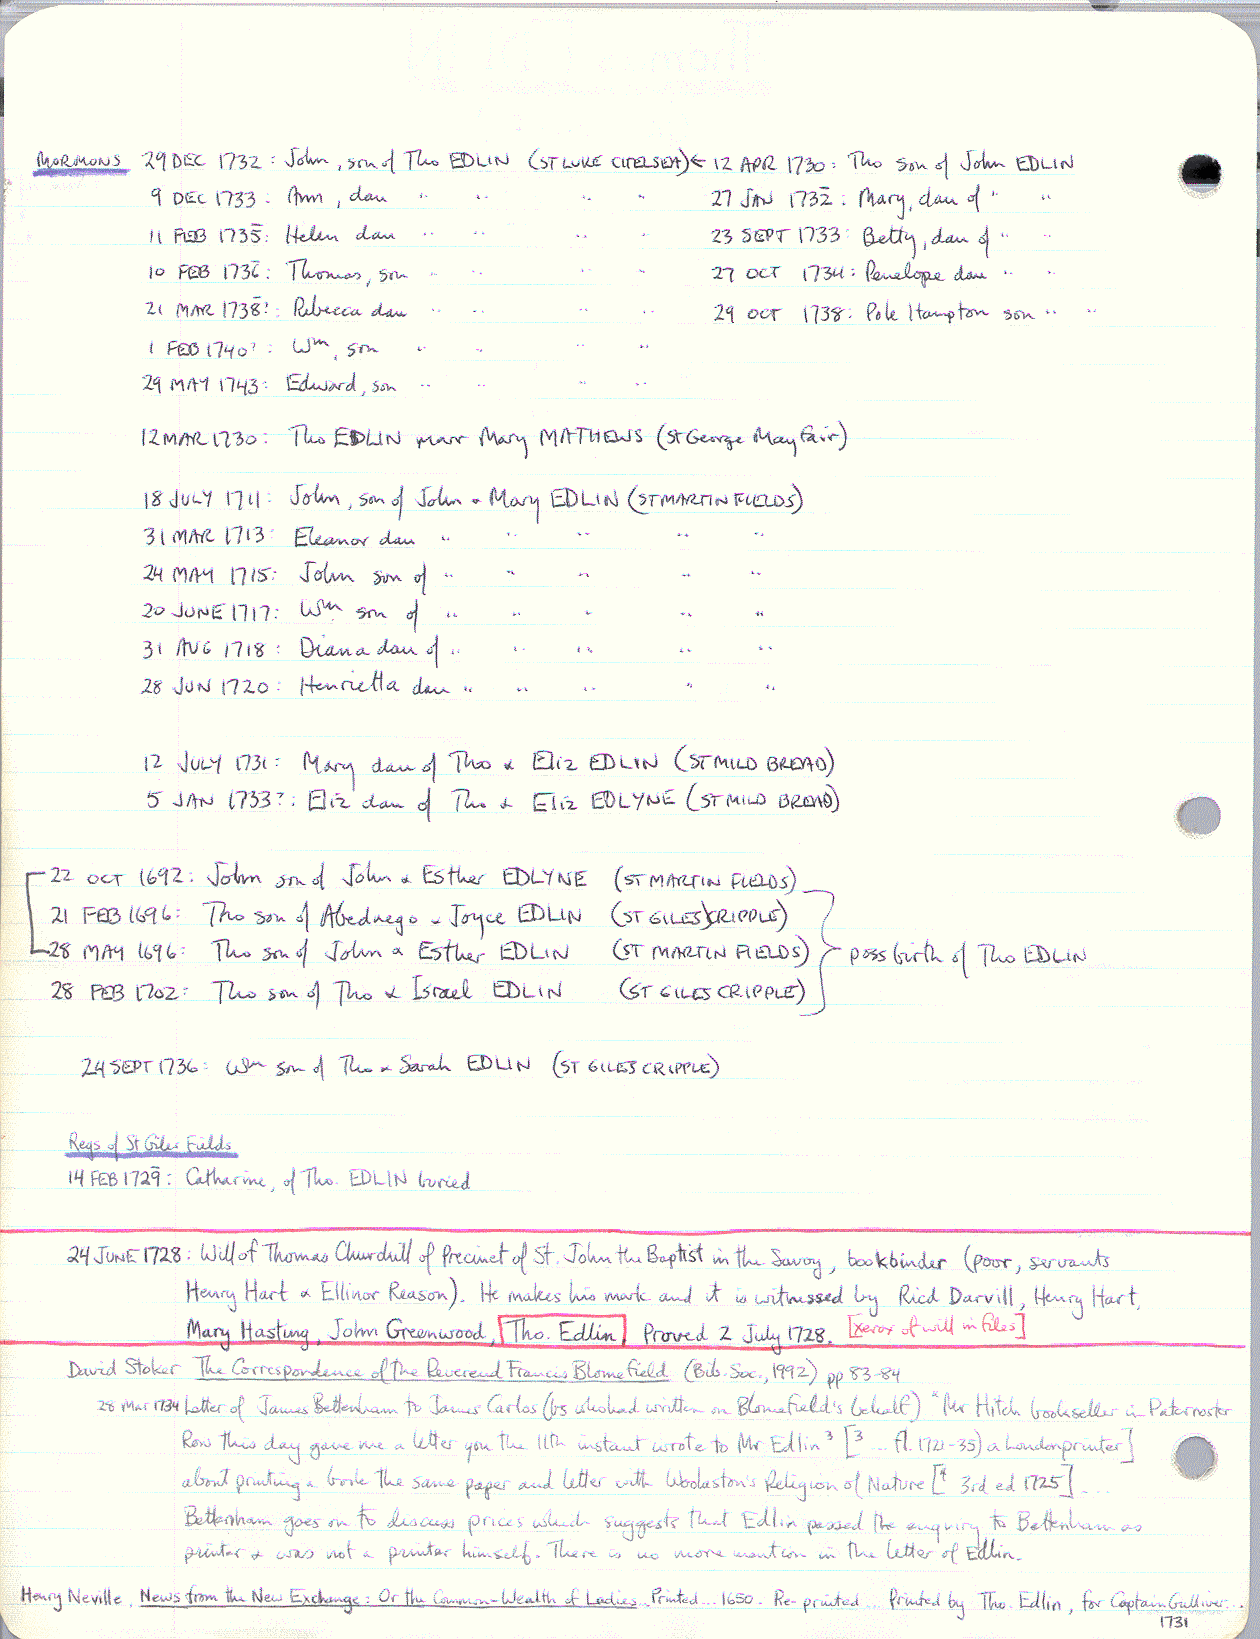 MORMONS 29 DEC 1732 : John, son of Tho EDLIN (ST LUKE CHELSEA) ← 12 APR 1730 : Tho son of John EDLIN
9 DEC 1733 : Ann, dau " " " " 27 JAN 1732 : Mary, dau of " "
11 FEB 1735 : Helen dau " " " " 23 SEPT 1733 : Betty, dau of " "
10 FEB 1736 : Thomas, son " " " " 27 OCT 1734 : Penelope dau " "
21 MAR 1738? : Rebecca dau " " " " 29 OCT 1738 : Pole Hampton son " "
1 FEB 1740? : Wm, son " " " "
29 MAY 1743 : Edward, son " " " "
12 MAR 1730 : Tho EDLIN marr Mary MATHEWS (St George Mayfair)
18 JULY 1711 : John, son of John & Mary EDLIN (ST MARTIN FIELDS)
31 MAR 1713 : Eleanor dau " " " " "
24 MAY 1715 : John son of " " " " "
20 JUNE 1717 : Wm son of " " " " "
31 AUG 1718 : Diana dau of " " " " "
28 JUN 1720 : Henrietta dau " " " " "
12 JULY 1731 : Mary dau of Tho & Eliz EDLIN (ST MILD BREAD)
5 JAN 1733? : Eliz dau of Tho & Eliz EDLYNE (ST MILD BREAD)
22 OCT 1692 : John son of John & Esther EDLYNE (ST MARTIN FIELDS)
21 FEB 1696 : Tho son of Abednego & Joyce EDLIN (ST GILES CRIPPLE)
28 MAY 1696 : Tho son of John & Esther EDLIN (ST MARTIN FIELDS) poss birth of Tho EDLIN
28 FEB 1702 : Tho son of Tho & Israel EDLIN (ST GILES CRIPPLE)
24 SEPT 1736 : Wm son of Tho & Sarah EDLIN (ST GILES CRIPPLE)
Regs of St Giles Fields
14 FEB 1729 : Catharine, of Tho. EDLIN buried
24 JUNE 1728 : Will of Thomas Churchill of Precinct of St. John the Baptist in the Savoy, bookbinder (poor, servants
Henry Hart & Ellinor Reason). He makes his mark and it is witnessed by Ricd Darvill, Henry Hart,
Mary Hasting, John Greenwood, Tho. Edlin Proved 2 July 1728. [xerox of will in files]
David Stoker The Correspondence of the Reverend Francis Blomefield (Bib. Soc., 1992) pp 83-84
28 Mar 1734 Letter of James Bettenham to James Carlos (bs who had written on Blomefield's behalf) "Mr Hitch bookseller in Paternoster
Row this day gave me a letter you the 11th instant wrote to Mr Edlin³ [³ ... fl. 1721-35) a London printer]
about printing a book the same paper and letter with Woolaston's Religion of Nature [⁴ 3rd ed 1725] ....
Bettenham goes on to discuss prices which suggests that Edlin passed the enquiry to Bettenham as
printer & was not a printer himself. There is no more mention in the letter of Edlin.
Henry Neville, News from the New Exchange : Or the Common-Wealth of Ladies.. Printed... 1650. Re-printed... Printed by Tho. Edlin, for Captain Gulliver...
1731